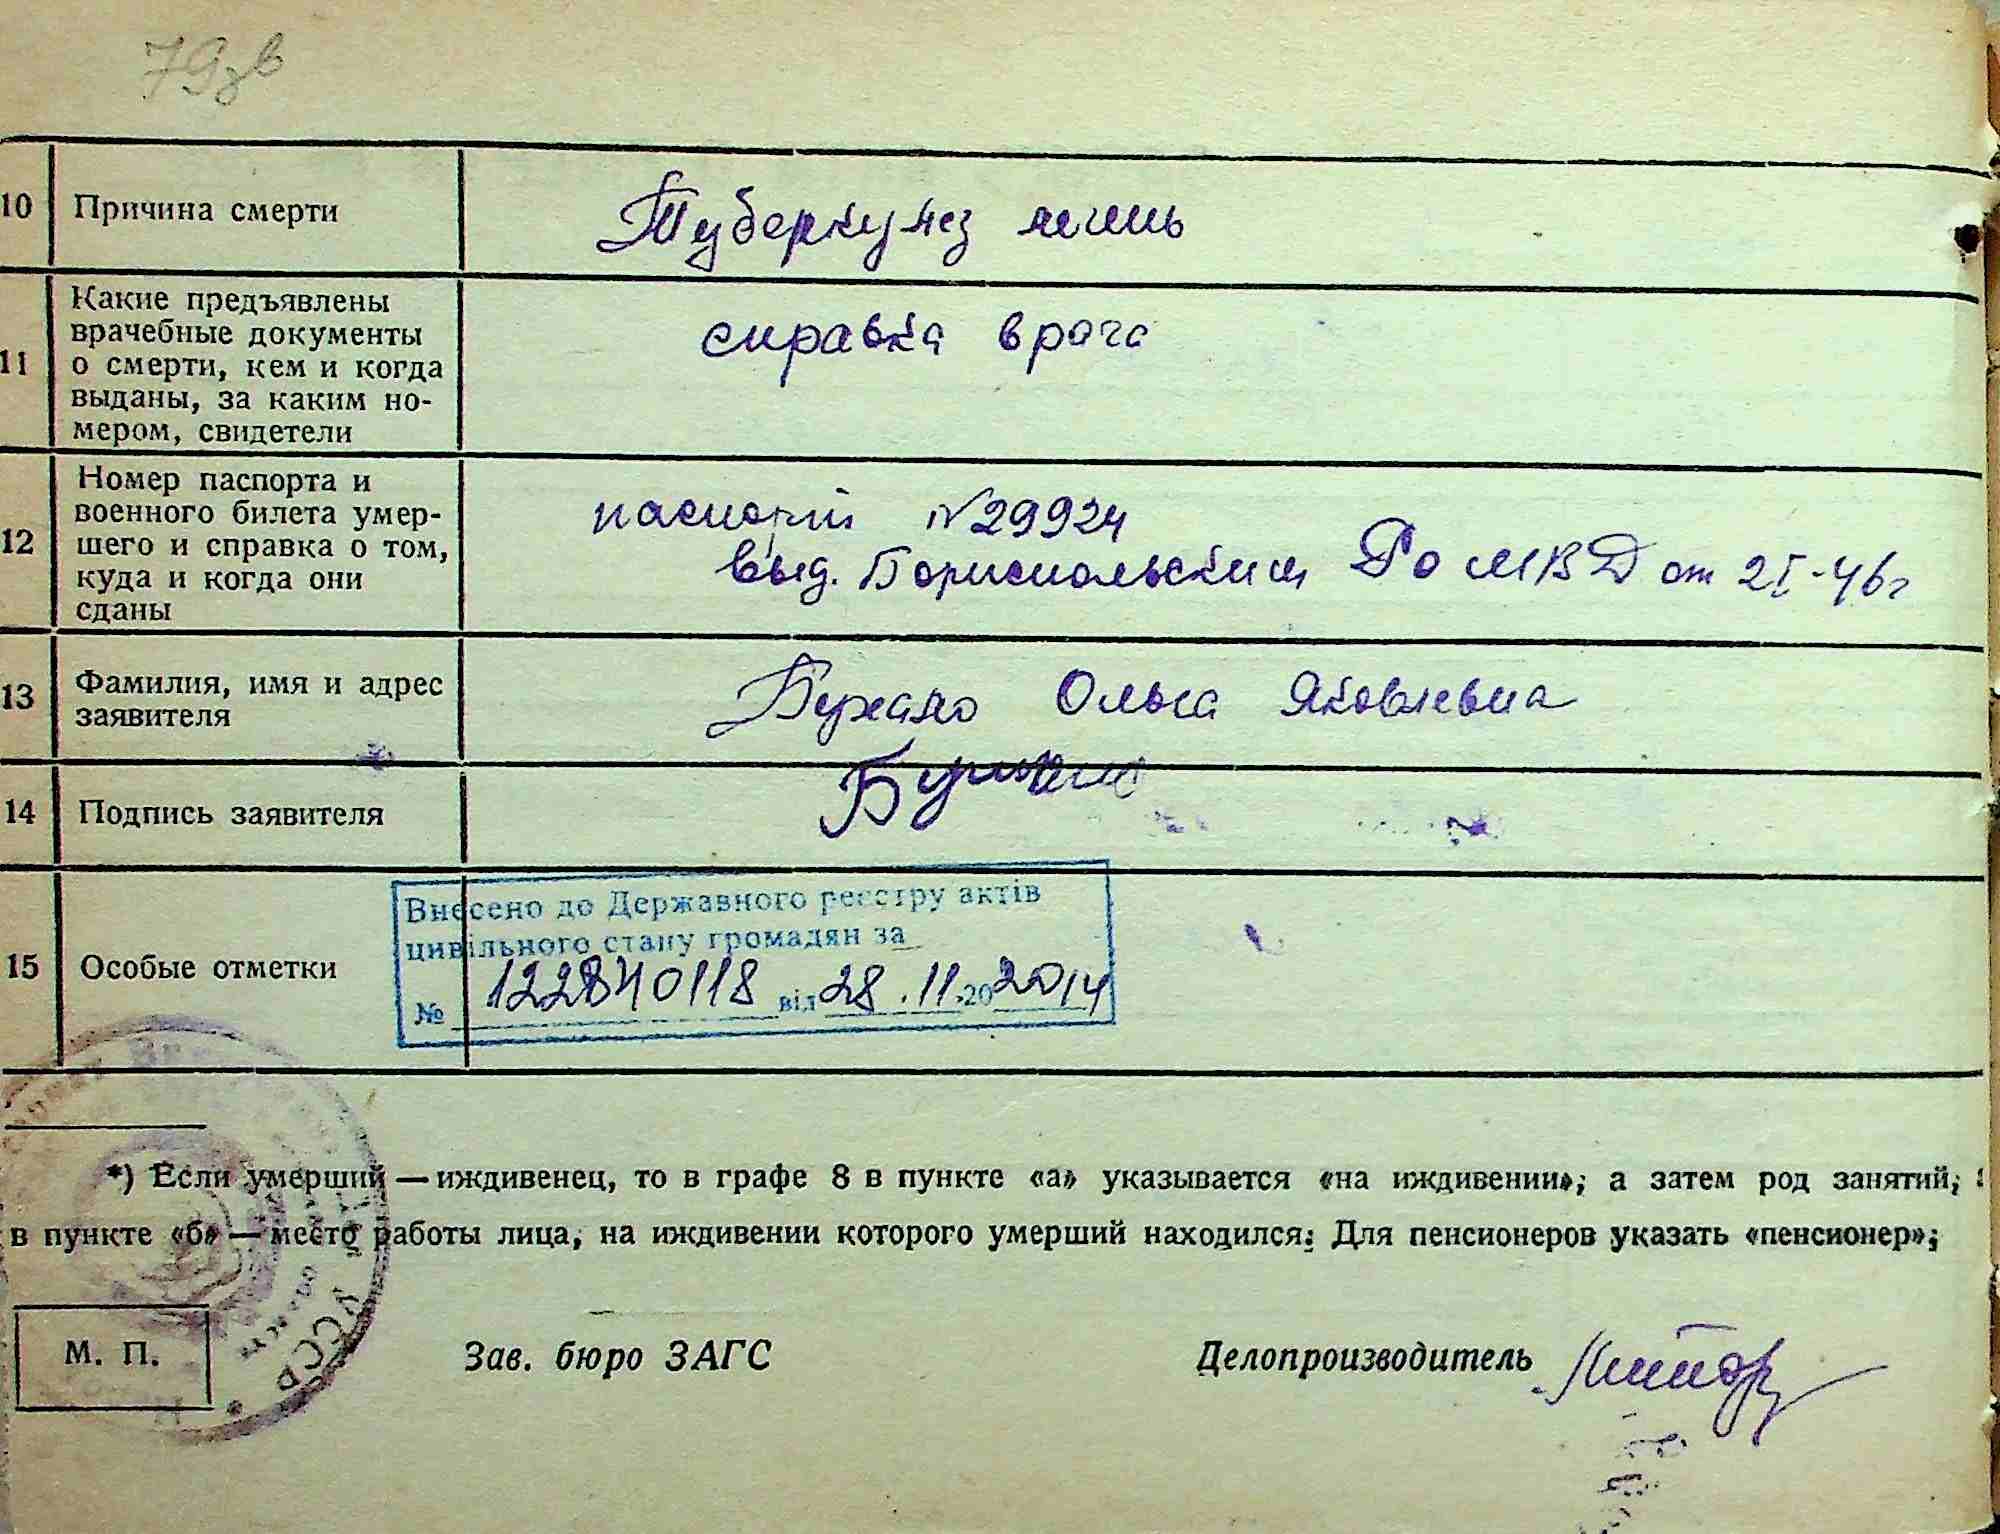 79зв
10 Причина смерти
Туберкулез легень
11 Какие предъявлены
врачебные документы
о смерти, кем и когда
выданы, за каким но-
мером, свидетели
справка врача
12 Номер паспорта и
военного билета умер-
шего и справка о том,
куда и когда они
сданы
паспорт №29924
выд. Бориспольским Ро МВД от 2I-46г
13 Фамилия, имя и адрес
заявителя
Ольга Яковлевна
14 Подпись заявителя
15 Особые отметки
Внесено до Державного реєстру актів
цивільного стану громадян за
№ 122840118 від 28.11.20 2014
*) Если умерший — иждивенец, то в графе 8 в пункте «а» указывается «на иждивении»; а затем род занятий;
в пункте «б» — место работы лица, на иждивении которого умерший находился: Для пенсионеров указать «пенсионер»;
УССР
М. П.
Зав. бюро ЗАГС
Делопроизводитель